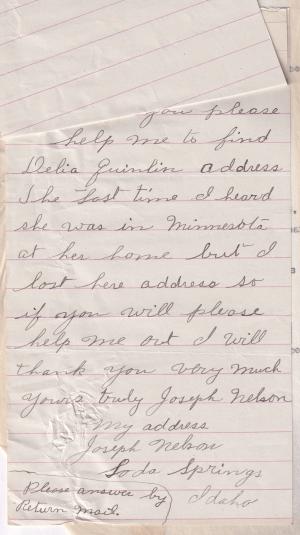 you please
help me to find
Delia Quinlin address
The last time I heard
she was in Minnesota
at her home but I
lost here address so
if you will please
help me out I will
thank you very much
Yours truly Joseph Nelson
My address
Joseph Nelson
Soda Springs
Idaho
Please answer by
Return Mail.